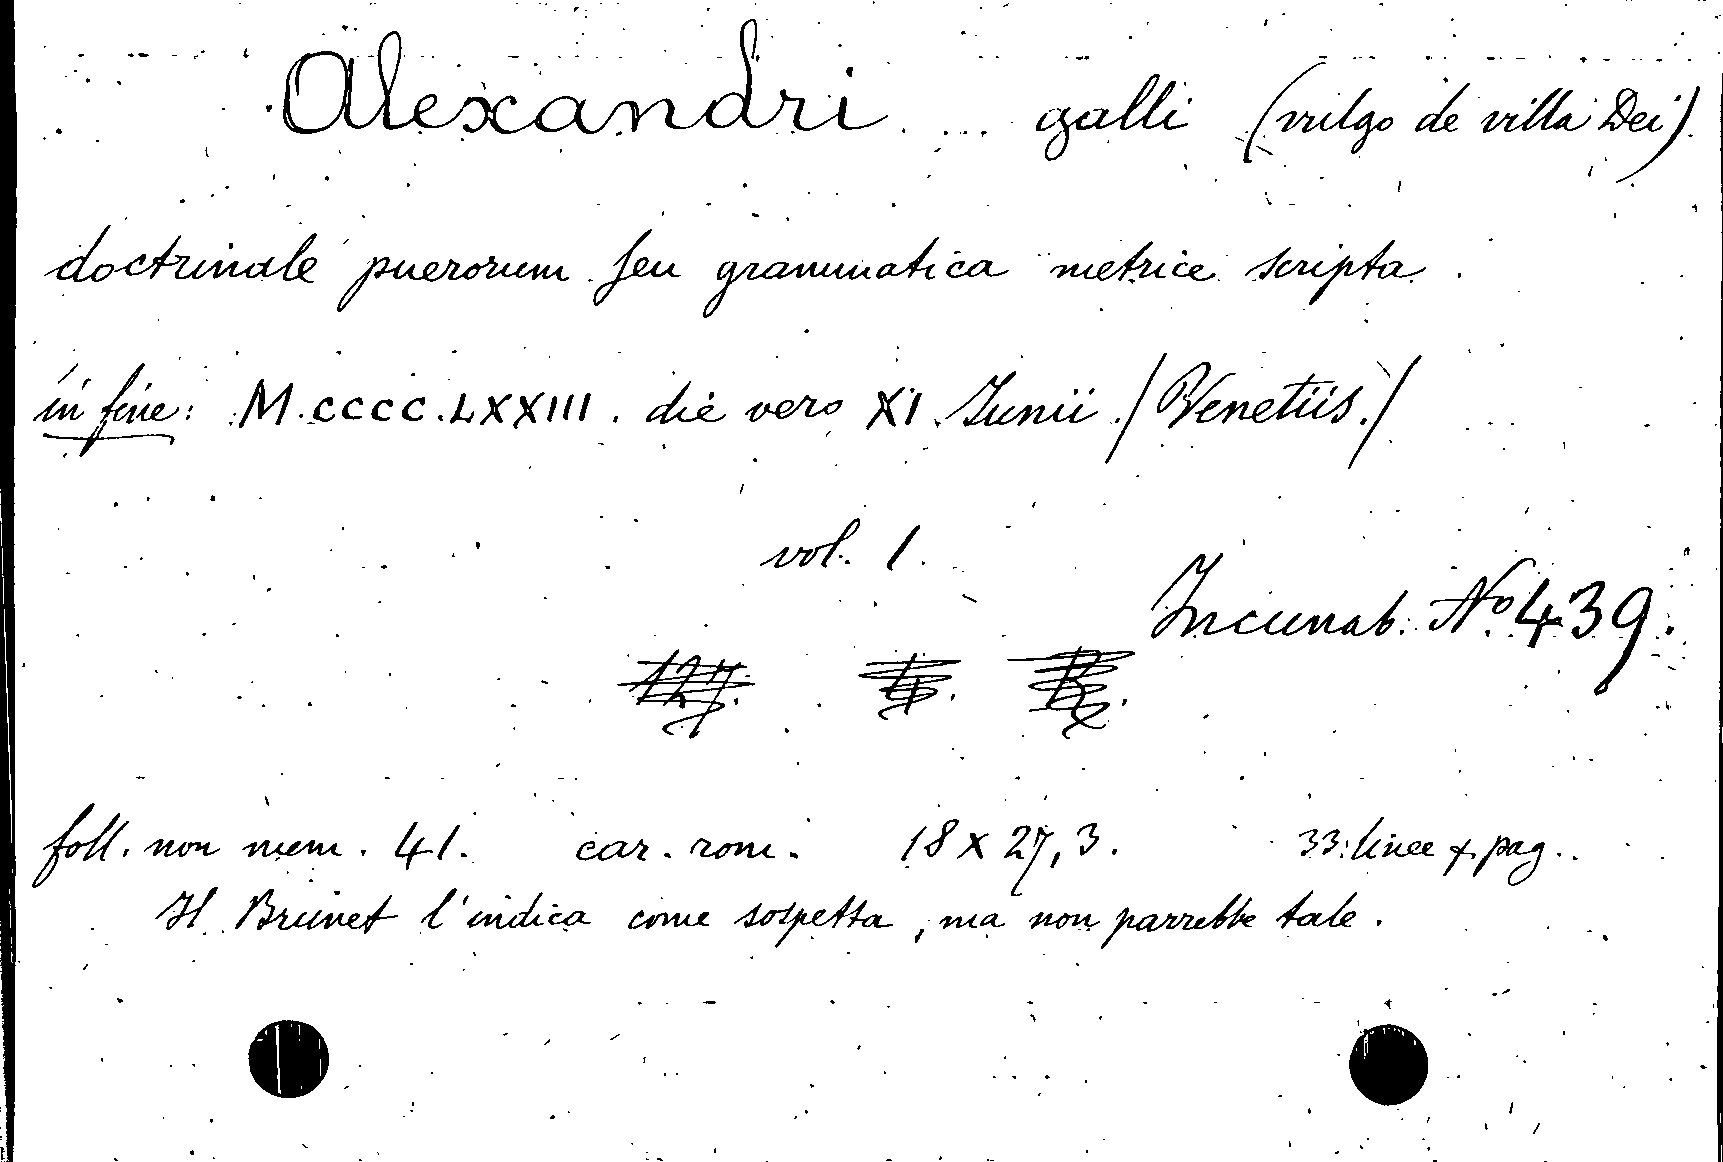 Alexandri ... galli (vulgo de villa Dei)
doctrinale puerorum seu grammatica metrice scripta.
in fine: M.CCCC.LXXIII. die vero XI Junii. / Venetiis. /
vol. 1.
Incunab. No 439.
foll. non num. 41. car. rom. 18 x 27,3. 33: linee x pag..
Il Brunet l'indica come sospetta, ma non parrebbe tale.